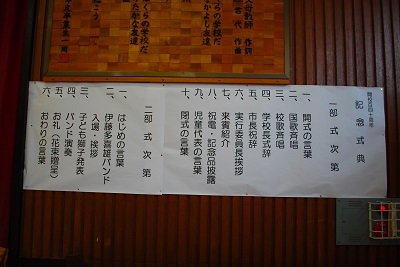 開校百四十周年
記念式典
一部 式次第
一、開式の言葉
二、国歌斉唱
三、校歌斉唱
四、学校長式辞
五、市長祝辞
六、実行委員長挨拶
七、来賓紹介
八、祝電・記念品披露
九、児童代表の言葉
十、閉式の言葉
二部 式次第
一、はじめの言葉
二、伊藤多喜雄バンド
入場・挨拶
三、子ども獅子発表
四、バンド演奏
五、お礼(花束贈呈)
六、おわりの言葉